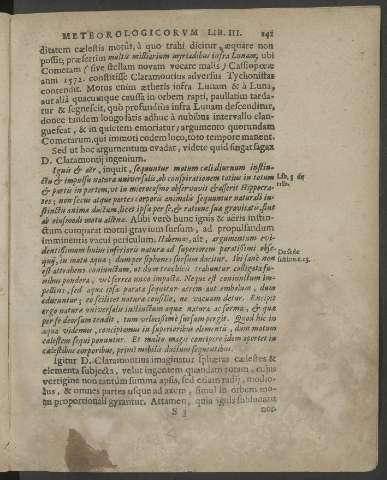 METEOROLOGICORVM LIB. III. 141
ditatem cælestis motûs, à quo trahi dicitur, æquare non
possit; præsertim multis milliarium myriadibus infra Lunam, ubi
Cometam (sive stellam novam vocare malis) Cassiopeæ
anni 1572. constitisse Claramontius adversus Tychonistas
contendit. Motus enim ætheris infra Lunam & à Luna,
aut aliâ quacunque caussâ in orbem rapti, paullatim tarda-
tur & segnescit, quo profundiùs infra Lunam descenditur,
donec tandem longo satis adhuc à nubibus intervallo elan-
guescat, & in quietem emoriatur; argumento quorundam
Cometarum, qui immoti eodem loco, toto tempore manent.
Sed ut hoc argumentum evadat, videte quid fingat sagax
D. Claramontij ingenium.
Ignis & aër, inquit, sequuntur motum cæli diurnum instin-
ctu & impulsu naturæ universalis, ob conspirationem totius in totum
& partis in partem, ut in microcosmo observavit & asserit Hippocra-
tes; non secus atque partes corporis animalis sequuntur naturali in-
stinctu animæ ductum, licet ipsa per se, & ratione suæ gravitatis, sint
ab eiusmodi motu alienæ. Alibi verò hunc ignis & aëris instin-
ctum comparat motui gravium sursum, ad propulsandum
imminentis vacui periculum. Habemus, ait, argumentum evi-
dentissimum huius inferioris naturæ ad superiorem paratissimi obse-
quij, in motu aquæ; dum per siphones sursum ducitur. Ibi sanè non
est attrahens coniunctum, ut dum trochleis trahuntur colligata fu-
nibus pondera, vel ferrea unco impacta. Neque est coniunctum im-
pellens; sed aqua ipsa parata sequitur aërem aut embolum, dum
educuntur; eo scilicet naturæ consilio, ne vacuum detur. Excipit
ergo naturæ universalis instinctum aqua natura ac forma, & quæ
per se deorsum tendit, tum velocissimè sursum pergit. Quod hîc in
aqua videmus, concipiamus in superioribus elementis, dum motum
cælestem sequi ponuntur. Et multo magis concipere idem oportet in
cælestibus corporibus, primi mobilis ductum sequentibus.
Igitur D. Claramontius imaginatur sphæras cælestes &
elementa subjecta, velut ingentem quandam rotam, cujus
vertigine non tantùm summa apsis, sed etiam radij, modio-
lus, & omnes partes usque ad axem, simul in orbem mo-
tu proportionali gyrantur. Attamen, quia ignis sublunaris
S 3 non